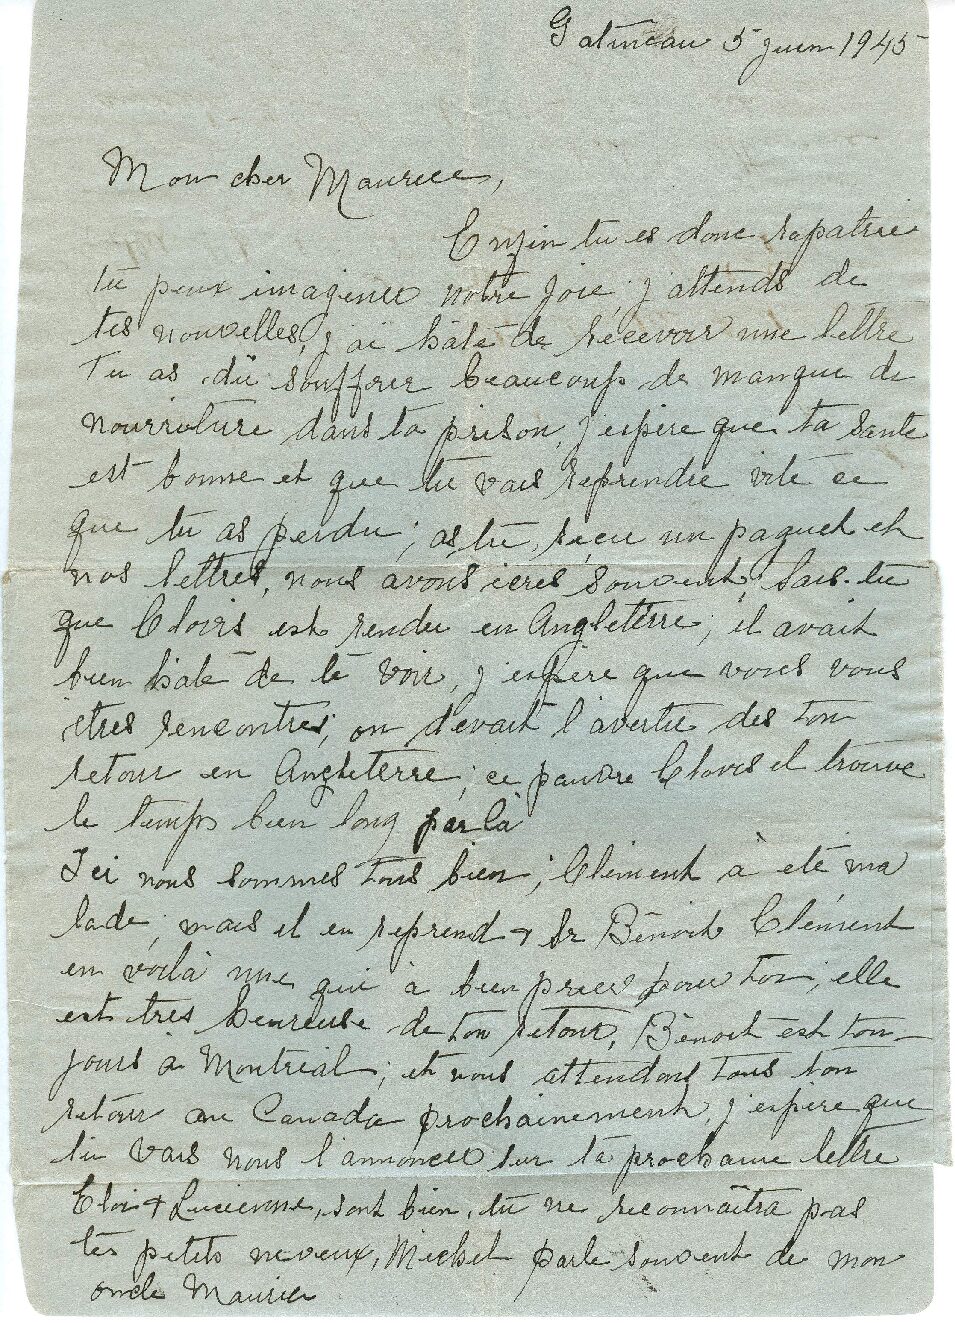 Gatineau 5 juin 1945
Mon cher Maurice,
Enfin tu es donc rapatrié
tu peux imaginer notre joie, j'attends de
tes nouvelles, j'ai hâte de recevoir une lettre
Tu as dû souffrir beaucoup de manque de
nourriture dans ta prison, j'espère que ta santé
est bonne et que tu vas reprendre vite ce
que tu as perdu; as tu reçu un paquet et
nos lettres, nous avons souvent, sais-tu
que Clovis est rendu en Angleterre, il avait
bien hâte de te voir, j'espère que vous vous
êtres rencontrés, on devait l'avertir des ton
retour en Angleterre, ce pauvre Clovis il trouve
le temps bien long par là
Ici nous sommes tous bien, Clément à été ma
lade, mais il en reprend + Sr Bénoit Clément
en voilà une qui à bien prier pour toi, elle
est très heureuse de ton retour, Bénoit est tou-
jours à Montréal; et nous attendons tous ton
retour au Canada prochainement, j'espère que
tu vas nous l'annoncer sur ta prochaine lettre
+ Lucienne, sont bien, tu ne reconnaîtra pas
tes petits neveux, Michel parle souvent de mon
oncle Maurice